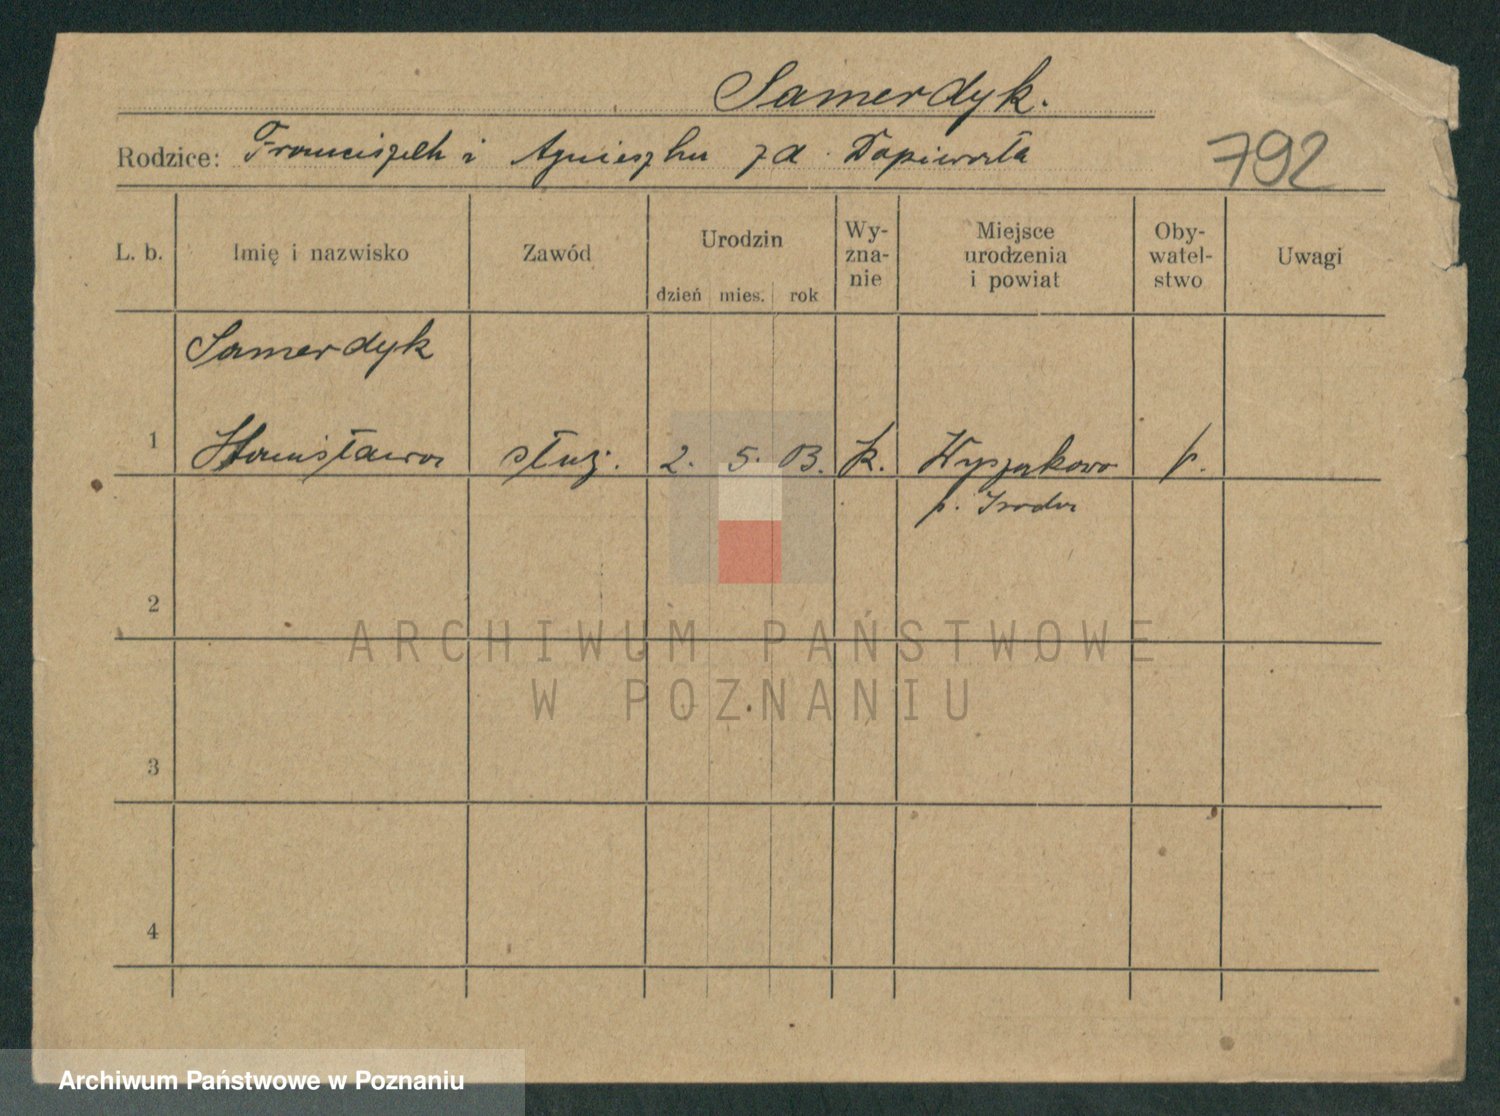 Samerdyk.
Rodzice: Franciszek i Agnieszka z d. Dopierała
792
L. b.
Imię i nazwisko
Zawód
Urodzin
dzień mies. rok
Wy-
zna-
nie
Miejsce
urodzenia
i powiat
Oby-
watel-
stwo
Uwagi
Samerdyk
1 Stanisława służ. 2. 5. 03. k. Wyszakowo p.
p. Środa
2
ARCHIWUM PAŃSTWOWE
W POZNANIU
3
4
Archiwum Państwowe w Poznaniu